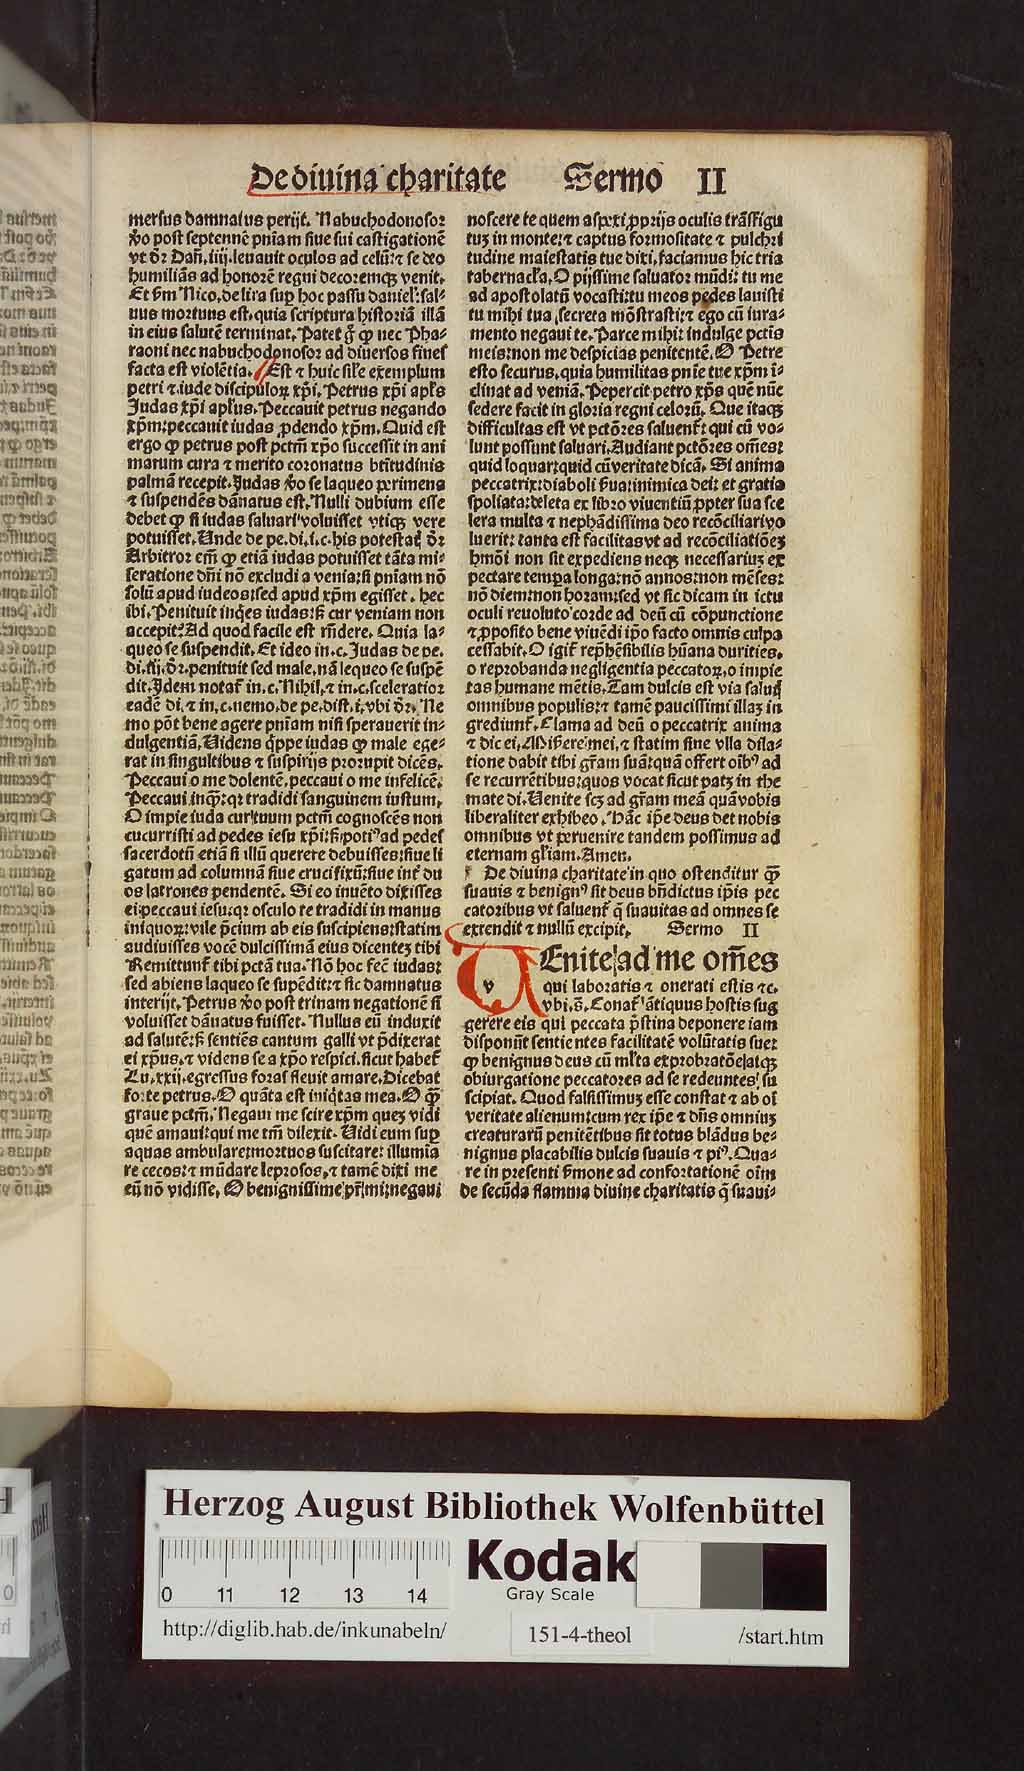 De diuina charitate Sermo II
mersus damnatus perijt. Nabuchodonosor
ꝟo post septennē pniam siue sui castigationē
vt dr̄ Dañ. iiij. leuauit oculos ad celū: ⁊ se deo
humiliās ad honorē regni decoremqꝫ venit.
Et ẜm Nico. de lira suꝑ hoc passu daniel': sal⸗
uus mortuus est. quia scriptura historiā illā
in eius salutē terminat. Patet g̊ ꝙ nec Pha⸗
raoni nec nabuchodonosor ad diuersos fines
facta est violētia. Est ⁊ huic sile exemplum
petri ⁊ iude discipuloꝝ xp̄i. Petrus xp̄i apl̄s
Judas xp̄i apl̄us. Peccauit petrus negando
xp̄m: peccauit iudas ꝓdendo xp̄m. Quid est
ergo ꝙ petrus post pctm̄ xp̄o successit in ani
marum cura ⁊ merito coronatus btītudinis
palmā recepit. Judas ꝟo se laqueo ꝑerimens
⁊ suspendēs dānatus est. Nulli dubium esse
debet ꝙ si iudas saluari voluisset vtiqꝫ vere
potuisset. Unde de pe. di. i. c. his potestatꝭ dr̄
Arbitror em̄ ꝙ etiā iudas potuisset tāta mi⸗
seratione dn̄i nō excludi a venia: si pniam nō
solū apud iudeos: sed apud xp̄m egisset. hec
ibi. Penituit inqͥes iudas: ꝸ cur veniam non
accepit? Ad quod facile est rn̄dere. Quia la⸗
queo se suspendit. Et ideo in. c. Judas de pe.
di. iij. dr̄. penituit sed male. nā laqueo se suspē
dit. Idem notat̉ in. c. Nihil. ⁊ in. c. sceleratior
eadē di. ⁊ in. c. nemo. de pe. dist. i. vbi dr̄. Ne
mo pōt bene agere pniam nisi sperauerit in⸗
dulgentiā. Uidens qͥppe iudas ꝙ male ege⸗
rat in singultibus ⁊ suspirijs prorupit dicēs.
Peccaui o me dolentē. peccaui o me infelicē.
Peccaui inqͣꝫ: qꝛ tradidi sanguinem iustum.
O impie iuda cur tuum pctm̄ cognoscēs non
cucurristi ad pedes iesu xp̄i: ꝸ potiꝰ ad pedes
sacerdotū etiā si illū querere debuisses: siue li
gatum ad columnā siue crucifixū: siue int̉ du
os latrones pendentē. Si eo inuēto dixisses
ei: peccaui iesu: qꝛ osculo te tradidi in manus
iniquoꝝ: vile p̄cium ab eis suscipiens: statim
audiuisses vocē dulcissimā eius dicenteꝫ tibi
Remittunt̉ tibi pctā tua. Nō hoc fec̄ iudas:
sed abiens laqueo se supēdit: ⁊ sic damnatus
interijt. Petrus ꝟo post trinam negationē si
voluisset dānatus fuisset. Nullus eū induxit
ad salutē: ꝸ sentiēs cantum galli vt p̄dixerat
ei xp̄us. ⁊ videns se a xp̄o respici. sicut habet̉
Lu. xxij. egressus foras fleuit amare. Dicebat
forte petrus. O quāta est iniqͥtas mea. O qͣꝫ
graue pctm̄. Negaui me scire xp̄m quem vidi
quē amaui: qui me tm̄ dilexit. Uidi eum suꝑ
aquas ambulare: mortuos suscitare: illumia
re cecos: ⁊ mūdare leprosos. ⁊ tamē dixi me
eū nō vidisse. O benignissime pr̄ mi: negaui
noscere te quem aspexi ꝓprijs oculis trāsfigu
tuꝫ in monte: ⁊ captus formositate ⁊ pulchri
tudine maiestatis tue dixi. faciamus hic tria
tabernacl̄a. O pijssime saluator mūdi: tu me
ad apostolatū vocasti: tu meos pedes lauisti
tu mihi tua secreta mōstrasti: ⁊ ego cū iura⸗
mento negaui te. Parce mihi: indulge pctīs
meis: non me despicias penitentē. O Petre
esto securus. quia humilitas pnīe tue xp̄m i⸗
clinat ad veniā. Pepercit petro xp̄s quē nūc
sedere facit in gloria regni celorū. Que itaqꝫ
difficultas est vt pctōres saluent̉: qui cū vo⸗
lunt possunt saluari. Audiant pctōres om̄es:
quid loquar: quid cū veritate dicā. Si anima
peccatrix: diaboli ẜua: inimica dei: et gratia
spoliata: deleta ex libro viuentiū ꝓpter sua sce
lera multa ⁊ nephādissima deo recōciliari vo
luerit: tanta est facilitas vt ad recōciliatiōeꝫ
hmōi non sit expediens neqꝫ necessariuꝫ ex
pectare tempa longa: nō annos: non mēses:
nō diem: non horam: sed vt sic dicam in ictu
oculi reuoluto corde ad deū cū cōpunctione
⁊ ꝓposito bene viuēdi ip̄o facto omnis culpa
cessabit. O igit̉ rep̄hēsibilis hūana durities.
o reprobanda negligentia peccatoꝝ. o impie
tas humane mētis. Tam dulcis est via salutꝭ
omnibus populis: ⁊ tamē paucissimi illaꝫ in
grediunt̉. Clama ad deū o peccatrix anima
⁊ dic ei. Miserere mei. ⁊ statim sine vlla dila⸗
tione dabit tibi gr̄am suā: quā offert oibꝰ ad
se recurrētibus: quos vocat sicut patꝫ in the
mate di. Uenite scꝫ ad gr̄am meā quā vobis
liberaliter exhibeo. Hāc ip̄e deus det nobis
omnibus vt peruenire tandem possimus ad
eternam gl̄iam. Amen.
De diuina charitate in quo ostenditur qͣꝫ
suauis ⁊ benignꝰ sit deus bn̄dictus ip̄is pec
catoribus vt saluent̉ q̄ suauitas ad omnes se
extendit ⁊ nullū excipit. Sermo II
v
Enite ad me om̄es
qui laboratis ⁊ onerati estis ⁊c.
vbi. s̄. Conat̉ ātiquus hostis sug
gerere eis qui peccata p̄stina deponere iam
disponūt sentientes facilitatē volūtatis sue:
ꝙ benignus deus cū ml̄ta exprobratōe atqꝫ
obiurgatione peccatores ad se redeuntes su
scipiat. Quod falsissimuꝫ esse constat ⁊ ab oī
veritate alienum: cum rex ip̄e ⁊ dn̄s omniuꝫ
creaturarū penitētibus sit totus blādus be⸗
nignus placabilis dulcis suauis ⁊ piꝰ. Qua⸗
re in presenti ẜmone ad confortationē oīm
de secūda flamma diuine charitatis q̄ suaui⸗
Herzog August Bibliothek Wolfenbüttel
0 11 12 13 14
Kodak
Gray Scale
http://diglib.hab.de/inkunabeln/
151-4-theol
/start.htm